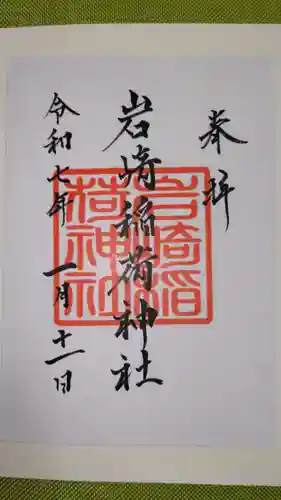 奉拝
岩崎稲荷神社
岩崎稲荷神社
令和七年一月十一日